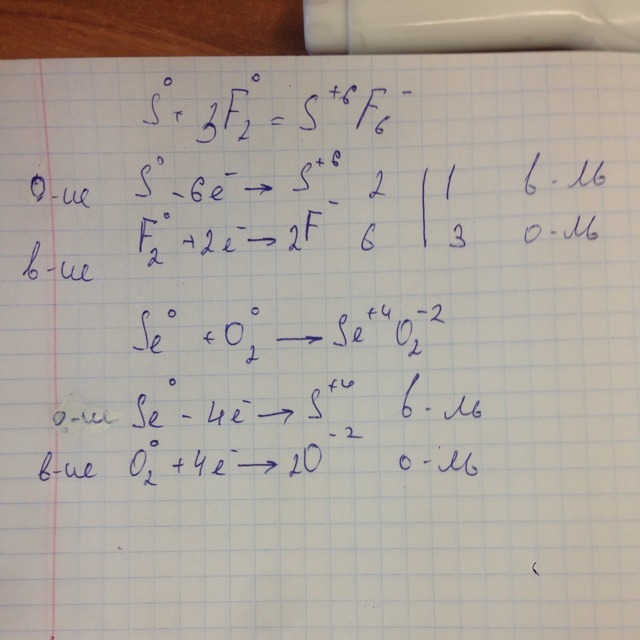 S⁰ + 3F₂⁰ = S⁺⁶F₆⁻
о-ие S⁰ - 6e⁻ → S⁺⁶ 2 | 1 в-ль
в-ие F₂⁰ + 2e⁻ → 2F⁻ 6 | 3 о-ль
Se⁰ + O₂⁰ → Se⁺⁴O₂⁻²
о-ие Se⁰ - 4e⁻ → S⁺⁴ в-ль
в-ие O₂⁰ + 4e⁻ → 2O⁻² о-ль